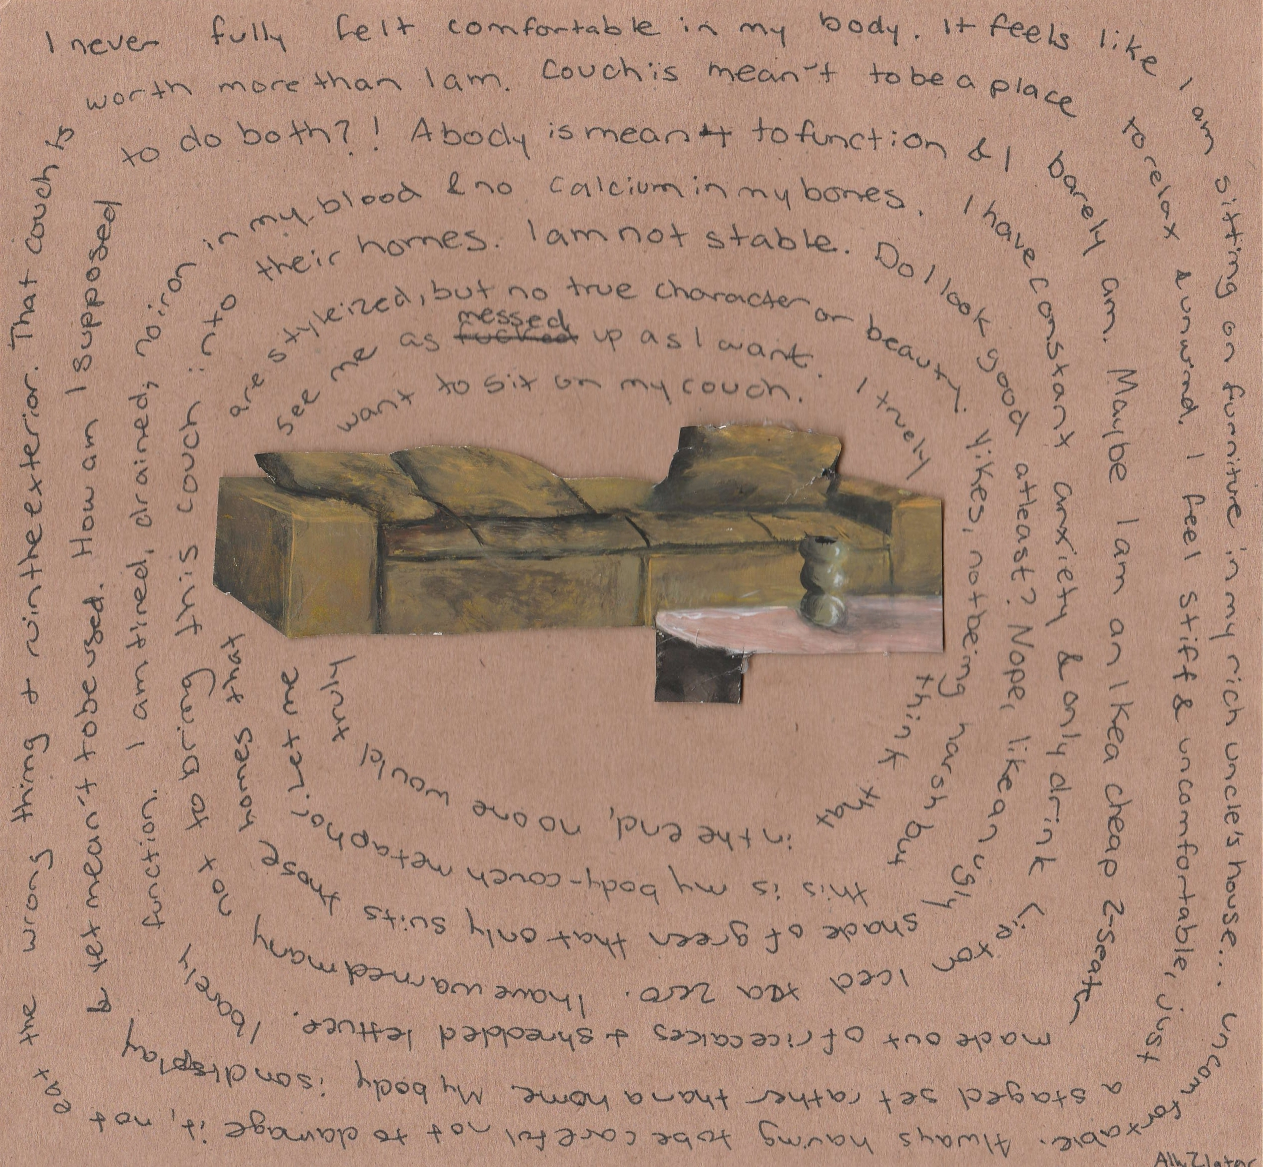 I never fully felt comfortable in my body. It feels like I am sitting on furniture in my rich uncle's house... uncomfortable. Always having to be careful not to damage it, not eat the wrong thing & ruin the exterior. That couch is
worth more than I am. Couch is mean't to be a place to relax & unwind. I feel stiff & uncomfortable, just a staged set rather than a home. My body is on display & yet mean't to be used. How am I supposed
to do both?! A body is meant to function & I barely am. Maybe I am an Ikea cheap 2-seater made out of ricecakes & shredded lettuce. I barely function. I am tired, drained, no iron
in my blood & no calcium in my bones. I have constant anxiety & only drink Lipton Iced tea zero. I have warned many not to bring this couch into
their homes. I am not stable. Do I look good atleast? Nope, like an ugly shade of green that only suits those homes that
are styleized, but no true character or beauty. Yikes, not being harsh but this is my body-couch metaphor. Let me
see me as messed up as I want. I truly think that in the end, no one would truly
want to sit on my couch.
Ally Zlatar